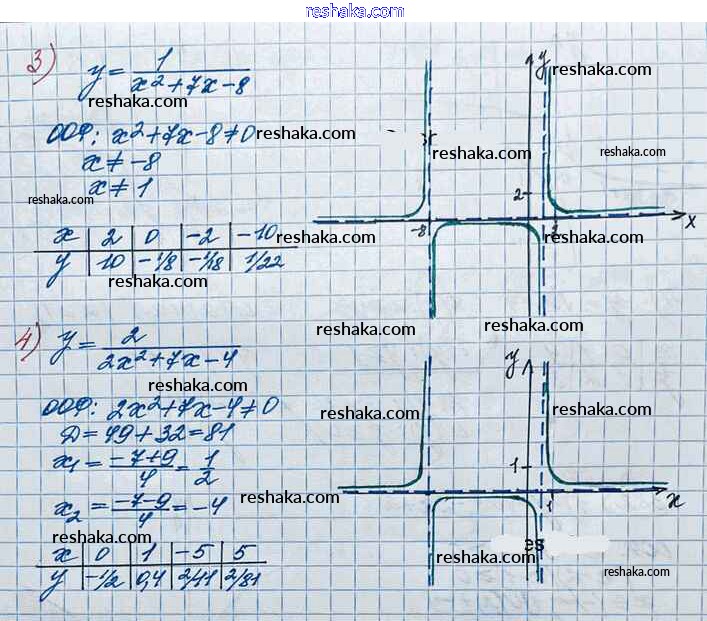 reshaka.com
3) y = 1/(x²+7x-8)
reshaka.com
ООФ: x²+7x-8≠0
reshaka.com
x≠-8
x≠1
reshaka.com
x | 2 | 0 | -2 | -10
reshaka.com
y | 10 | -1/8 | -1/18 | 1/22
reshaka.com
y
reshaka.com
reshaka.com
reshaka.com
2
-8
x
reshaka.com
reshaka.com
reshaka.com
4) y = 2/(2x²+7x-4)
reshaka.com
ООФ: 2x²+7x-4≠0
Д=49+32=81
x₁ = (-7+9)/4 = 1/2
x₂ = (-7-9)/4 = -4
reshaka.com
reshaka.com
x | 0 | 1 | -5 | 5
y | -1/2 | 0,4 | 2/11 | 2/81
reshaka.com
y
reshaka.com
reshaka.com
1
1
x
reshaka.com
reshaka.com